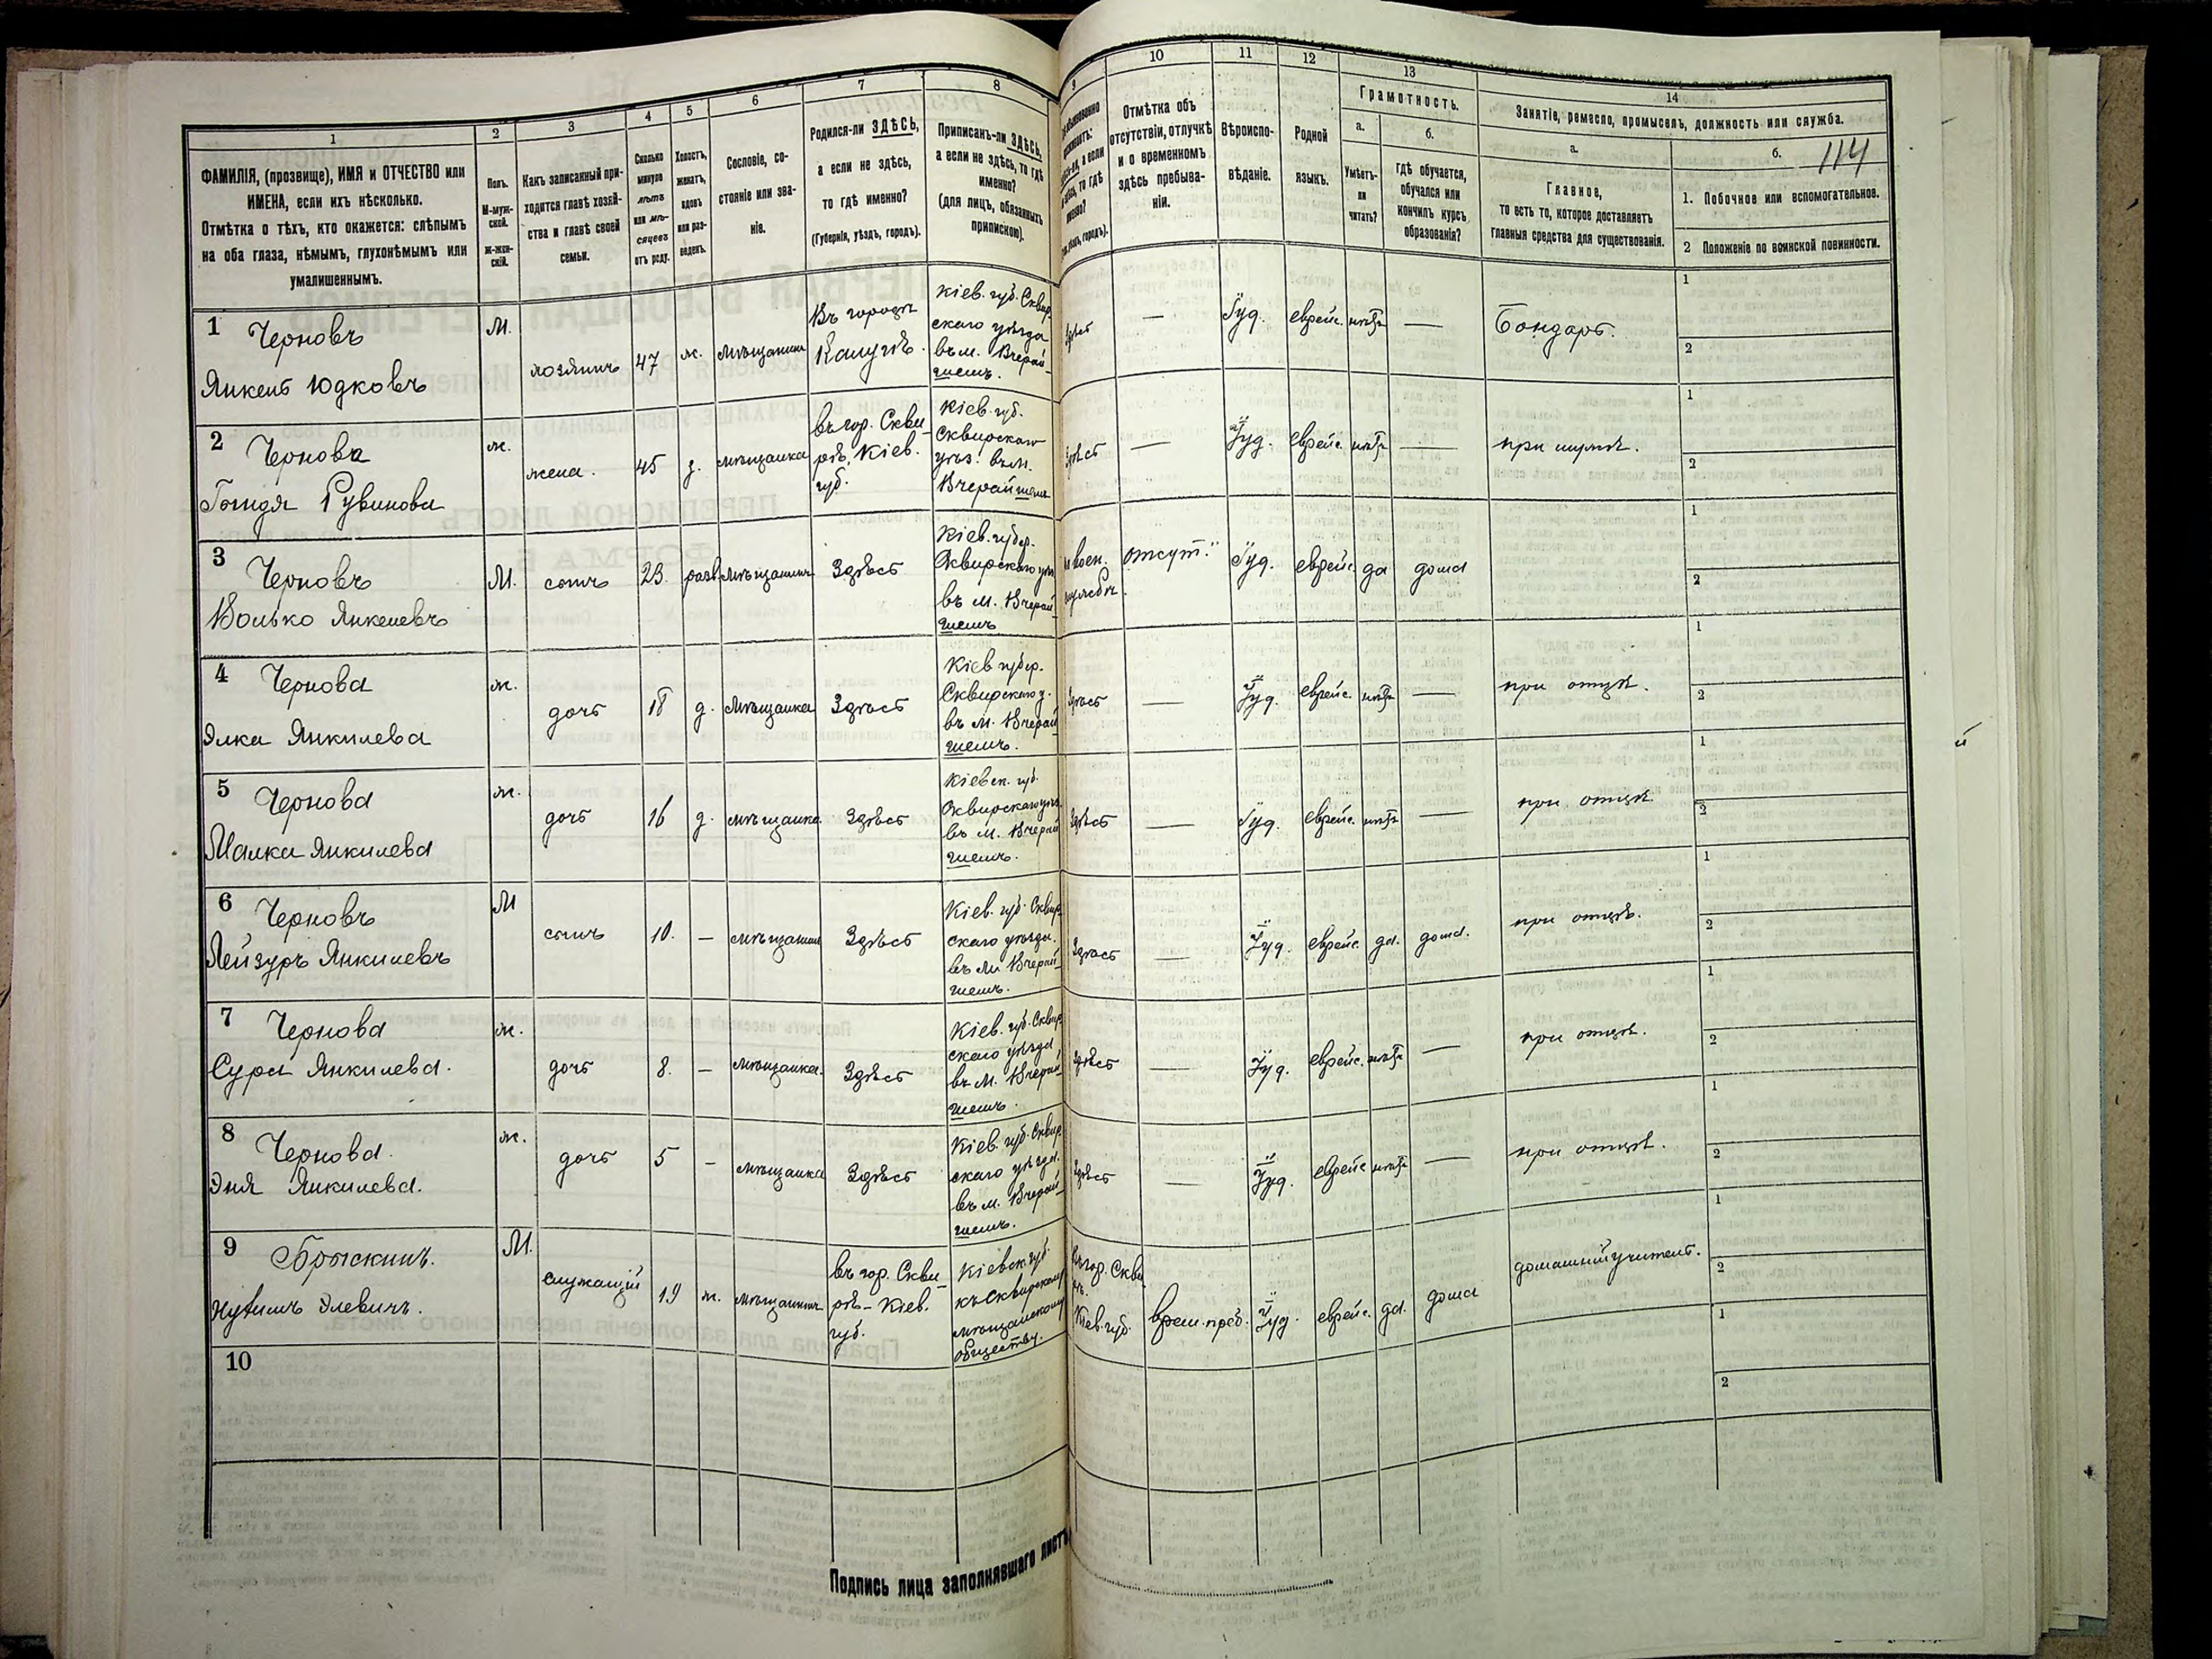 1 2 3 4 5 6 7 8
ФАМИЛІЯ, (прозвище), ИМЯ и ОТЧЕСТВО или
ИМЕНА, если ихъ нѣсколько.
Отмѣтка о тѣхъ, кто окажется: слѣпымъ
на оба глаза, нѣмымъ, глухонѣмымъ или
умалишеннымъ.
Полъ.
М-муж-
ской.
Ж-жен-
скій.
Какъ записанный при-
ходится главѣ хозяй-
ства и главѣ своей
семьи.
Сколько
минуло
лѣтъ
или мѣ-
сяцевъ
отъ роду.
Холостъ,
женатъ,
вдовъ
или раз-
веденъ.
Сословіе, со-
стояніе или зва-
ніе.
Родился-ли ЗДѢСЬ,
а если не здѣсь,
то гдѣ именно?
(Губернія, уѣздъ, городъ).
Приписанъ-ли ЗДѢСЬ,
а если не здѣсь, то гдѣ
именно?
(для лицъ, обязанныхъ
припискою).
9 10 11 12 13 14
Отмѣтка объ
отсутствіи, отлучкѣ
и о временномъ
здѣсь пребыва-
ніи.
Вѣроиспо-
вѣданіе.
Родной
языкъ.
Грамотность.
а.
Умѣетъ-
ли
читать?
б.
гдѣ обучается,
обучался или
кончилъ курсъ
образованія?
Занятіе, ремесло, промыселъ, должность или служба.
а.
Главное,
то есть то, которое доставляетъ
главныя средства для существованія.
б. 114
1. Побочное или вспомогательное.
2 Положеніе по воинской повинности.
1 Черновъ
Янкель Юдковъ
М.
хозяинъ
47
ж.
мѣщанинъ
Въ городѣ
Калугѣ.
Кіев. губ. Сквир
скаго уѣзда
въ м. Вчерай-
шемъ.
здѣсь
—
Іуд.
еврейс.
нѣтъ
—
Бондарь.
1
2
2 Чернова
Рувинова
ж.
жена.
45
з.
мѣщанка
въ гор. Скви-
рѣ, Кіев.
губ.
Кіев. губ.
Сквирскаго
уѣз. въ м.
Вчерайшемъ
здѣсь
—
Іуд.
еврейс.
нѣтъ
—
при мужѣ.
1
2
3 Черновъ
Волько Янкелевъ
М.
сынъ
23.
мѣщанинъ
Здѣсь
Кіев. губер.
Сквирскаго уѣз
въ м. Вчерай-
шемъ
воен.
службѣ.
отсут.
Іуд.
еврейс.
да
дома
1
2
4 Чернова
Элка Янкилева
ж.
дочь
18
д.
мѣщанка
Здѣсь
Кіев губер.
Сквирскаго у.
въ м. Вчерай-
шемъ.
здѣсь
—
Іуд.
еврейс.
нѣтъ
—
при отцѣ.
1
2
5 Чернова
Малка Янкилева
ж.
дочь
16
д.
мѣщанка
Здѣсь
Кіевск. губ.
Сквирскаго уѣз.
въ м. Вчерай
шемъ.
здѣсь
—
Іуд.
еврейс.
нѣтъ
—
при отцѣ.
1
2
6 Черновъ
Лейзуръ Янкилевъ
М
сынъ
10.
—
мѣщанин
Здѣсь
Кіев. губ. Сквир
скаго уѣзда.
въ м. Вчерай-
шемъ.
Здѣсь
—
Іуд.
еврейс.
да.
дома.
при отцѣ.
1
2
7 Чернова
Сура Янкилева.
ж.
дочь
8.
—
мѣщанка.
Здѣсь
Кіев. губ. Сквир
скаго уѣзда
въ м. Вчерай-
шемъ.
здѣсь
—
Іуд.
еврейс.
нѣтъ
—
при отцѣ.
1
2
8 Чернова.
Эня Янкилева.
ж.
дочь
5
-
мѣщанка
Здѣсь
Кіев. губ. Сквир
скаго уѣзда.
въ м. Вчерай-
шемъ.
здѣсь
—
Іуд.
еврейс
нѣтъ
—
при отцѣ.
1
2
9
Элевичъ.
М.
служащій
19
мѣщанинъ
въ гор. Скви-
рѣ - Кіев.
губ.
Кіевск. губ.
къ Сквирскому
мѣщанскому
обществу.
въ гор. Скви
рѣ.
Кіев. губ.
врем. преб.
Іуд.
еврейс.
да.
дома
домашній учитель.
1
2
10
1
2
Подпись лица заполнявшаго листъ